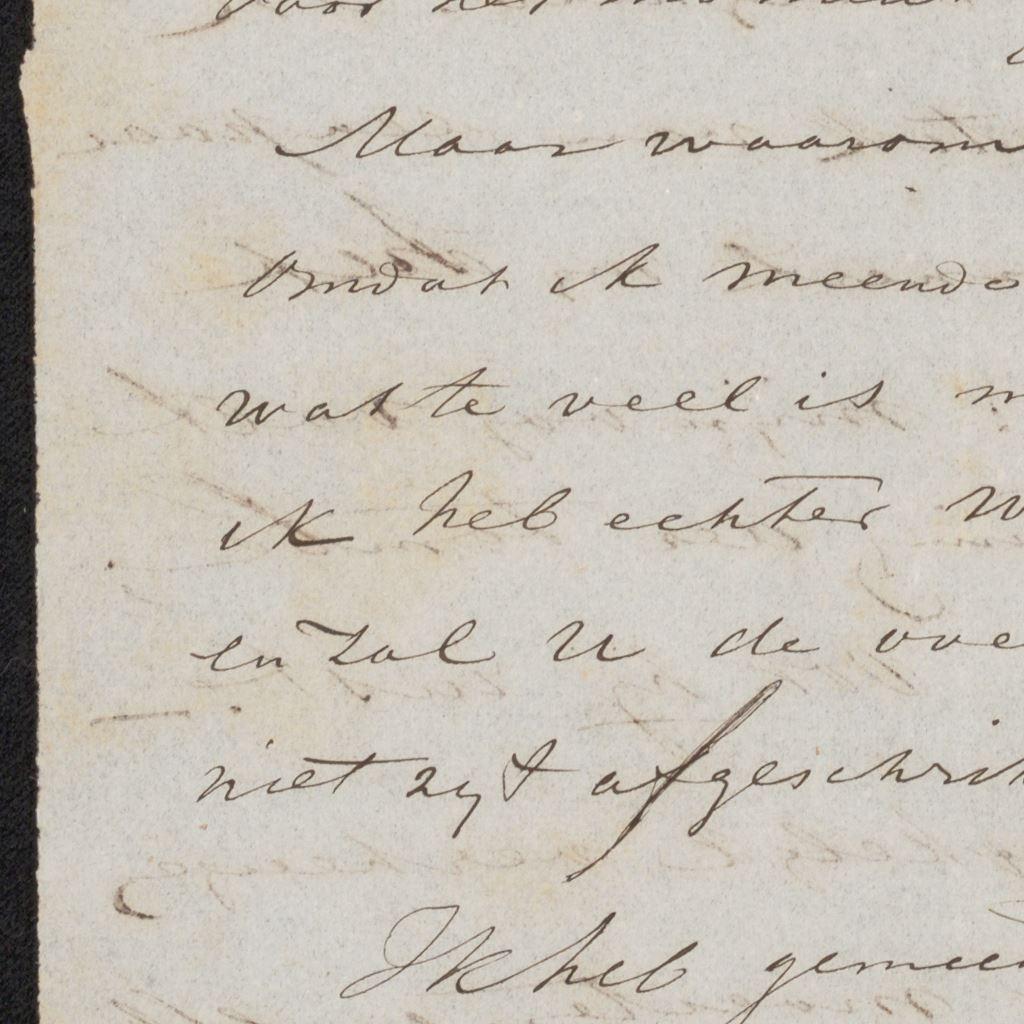 voor het
Maar waarom
Omdat ik meende
wat te veel is
ik heb echter
en zal u de
niet zyt afgeschrik
Ik heb gemeen